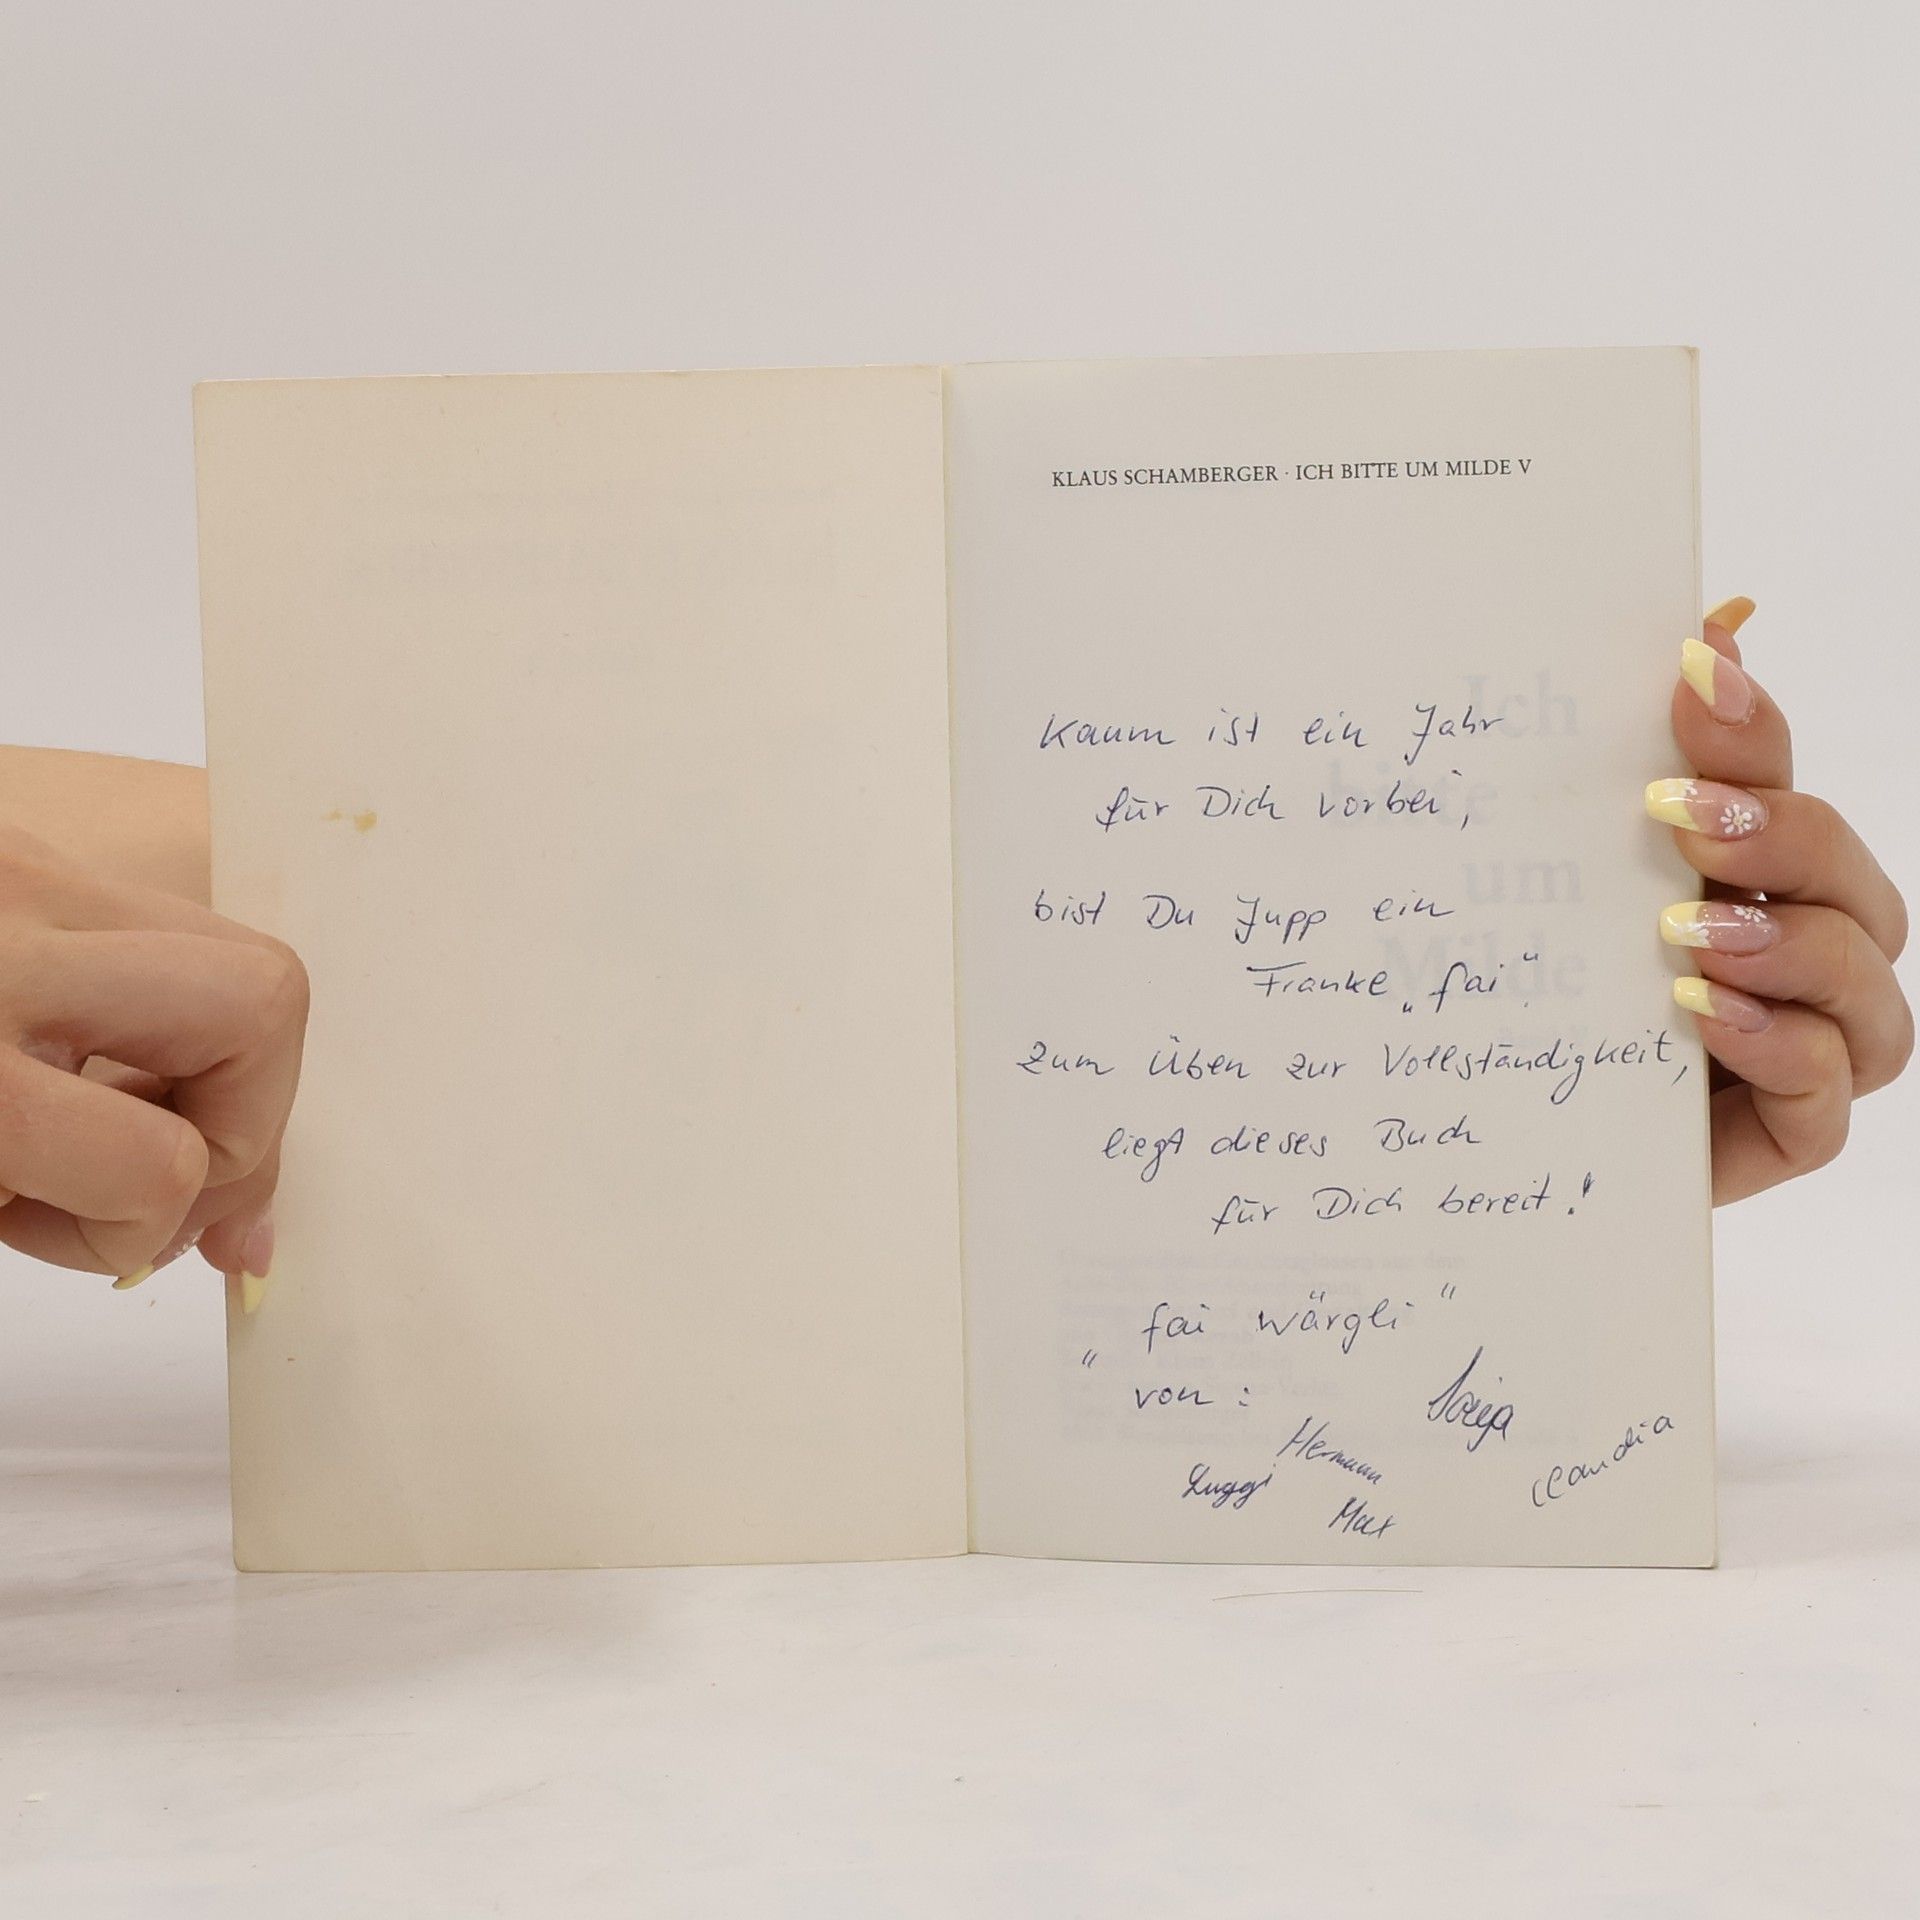 KLAUS SCHAMBERGER · ICH BITTE UM MILDE V
Kaum ist ein Jahr
für Dich vorbei,
bist Du Jupp ein
Franke „fai“
zum Üben zur Vollständigkeit,
liegt dieses Buch
für Dich bereit!
„fai wärgli“
von:
Hermann
Luggi
Max
Claudia
Ich
bitte
um
Milde